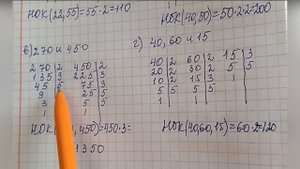 НОК(22,55)=55·2=110
НОК(40,50)=50·2·2=200
в) 270 и 450
г) 40, 60 и 15
270|2 450|2
135|3 225|3
45 75|3
9 25|5
3 5|5
1 1
40|2 60|2 15|3
20|2 30|2 5|5
10|2 15|3 1
5|5 5|5
1 1
НОК( , 450)=450·3=
1350
НОК(40,60,15)=60·2=120